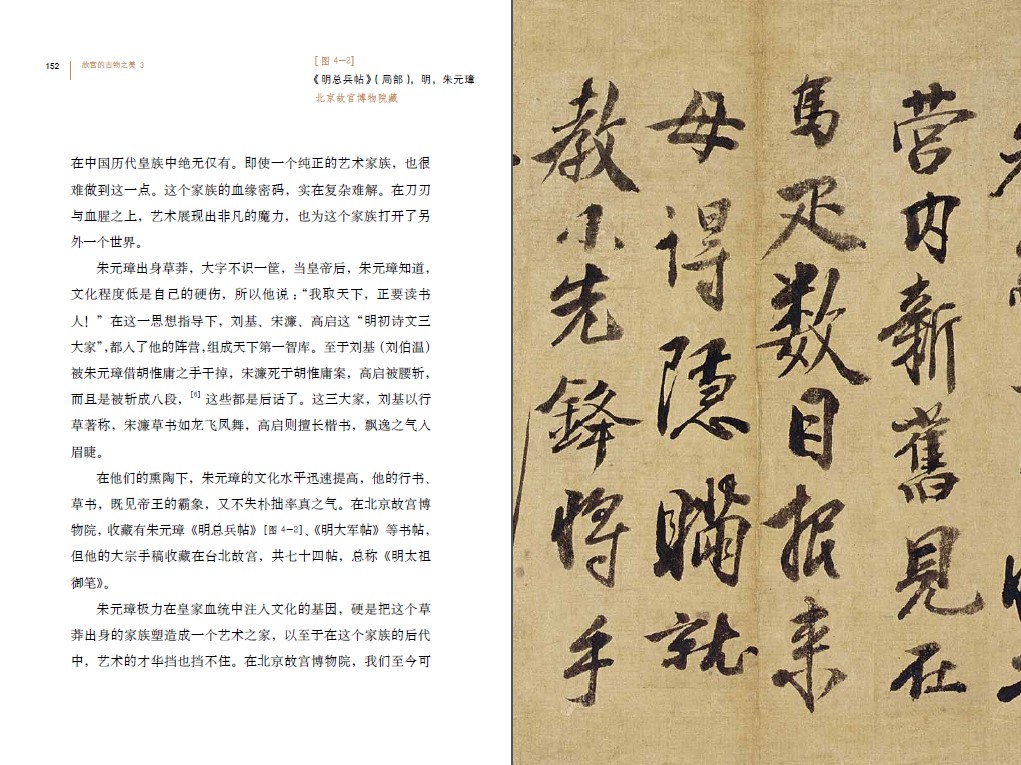 152
故宫的古物之美 3
[图 4—2]
《明总兵帖》（局部），明，朱元璋
北京故宫博物院藏
在中国历代皇族中绝无仅有。即使一个纯正的艺术家族，也很
难做到这一点。这个家族的血缘密码，实在复杂难解。在刀刃
与血腥之上，艺术展现出非凡的魔力，也为这个家族打开了另
外一个世界。
朱元璋出身草莽，大字不识一筐，当皇帝后，朱元璋知道，
文化程度低是自己的硬伤，所以他说：“我取天下，正要读书
人！”在这一思想指导下，刘基、宋濂、高启这“明初诗文三
大家”，都入了他的阵营，组成天下第一智库。至于刘基（刘伯温）
被朱元璋借胡惟庸之手干掉，宋濂死于胡惟庸案，高启被腰斩，
而且是被斩成八段，[6] 这些都是后话了。这三大家，刘基以行
草著称，宋濂草书如龙飞凤舞，高启则擅长楷书，飘逸之气入
眉睫。
在他们的熏陶下，朱元璋的文化水平迅速提高，他的行书、
草书，既见帝王的霸象，又不失朴拙率真之气。在北京故宫博
物院，收藏有朱元璋《明总兵帖》[图 4—2]、《明大军帖》等书帖，
但他的大宗手稿收藏在台北故宫，共七十四帖，总称《明太祖
御笔》。
朱元璋极力在皇家血统中注入文化的基因，硬是把这个草
莽出身的家族塑造成一个艺术之家，以至于在这个家族的后代
中，艺术的才华挡也挡不住。在北京故宫博物院，我们至今可
营内新舊見在
馬疋数目报来
母得隠瞞就
教小先鋒将手